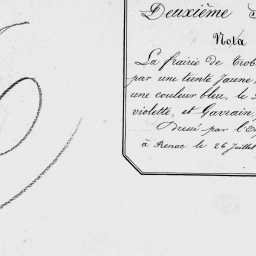 Deuxième
Nota
La frairie de Trob
par une teinte jaune,
une couleur bleu, le
violette, et Gavrain,
Dressé par l'Ex
à Renac le 26 Juillet